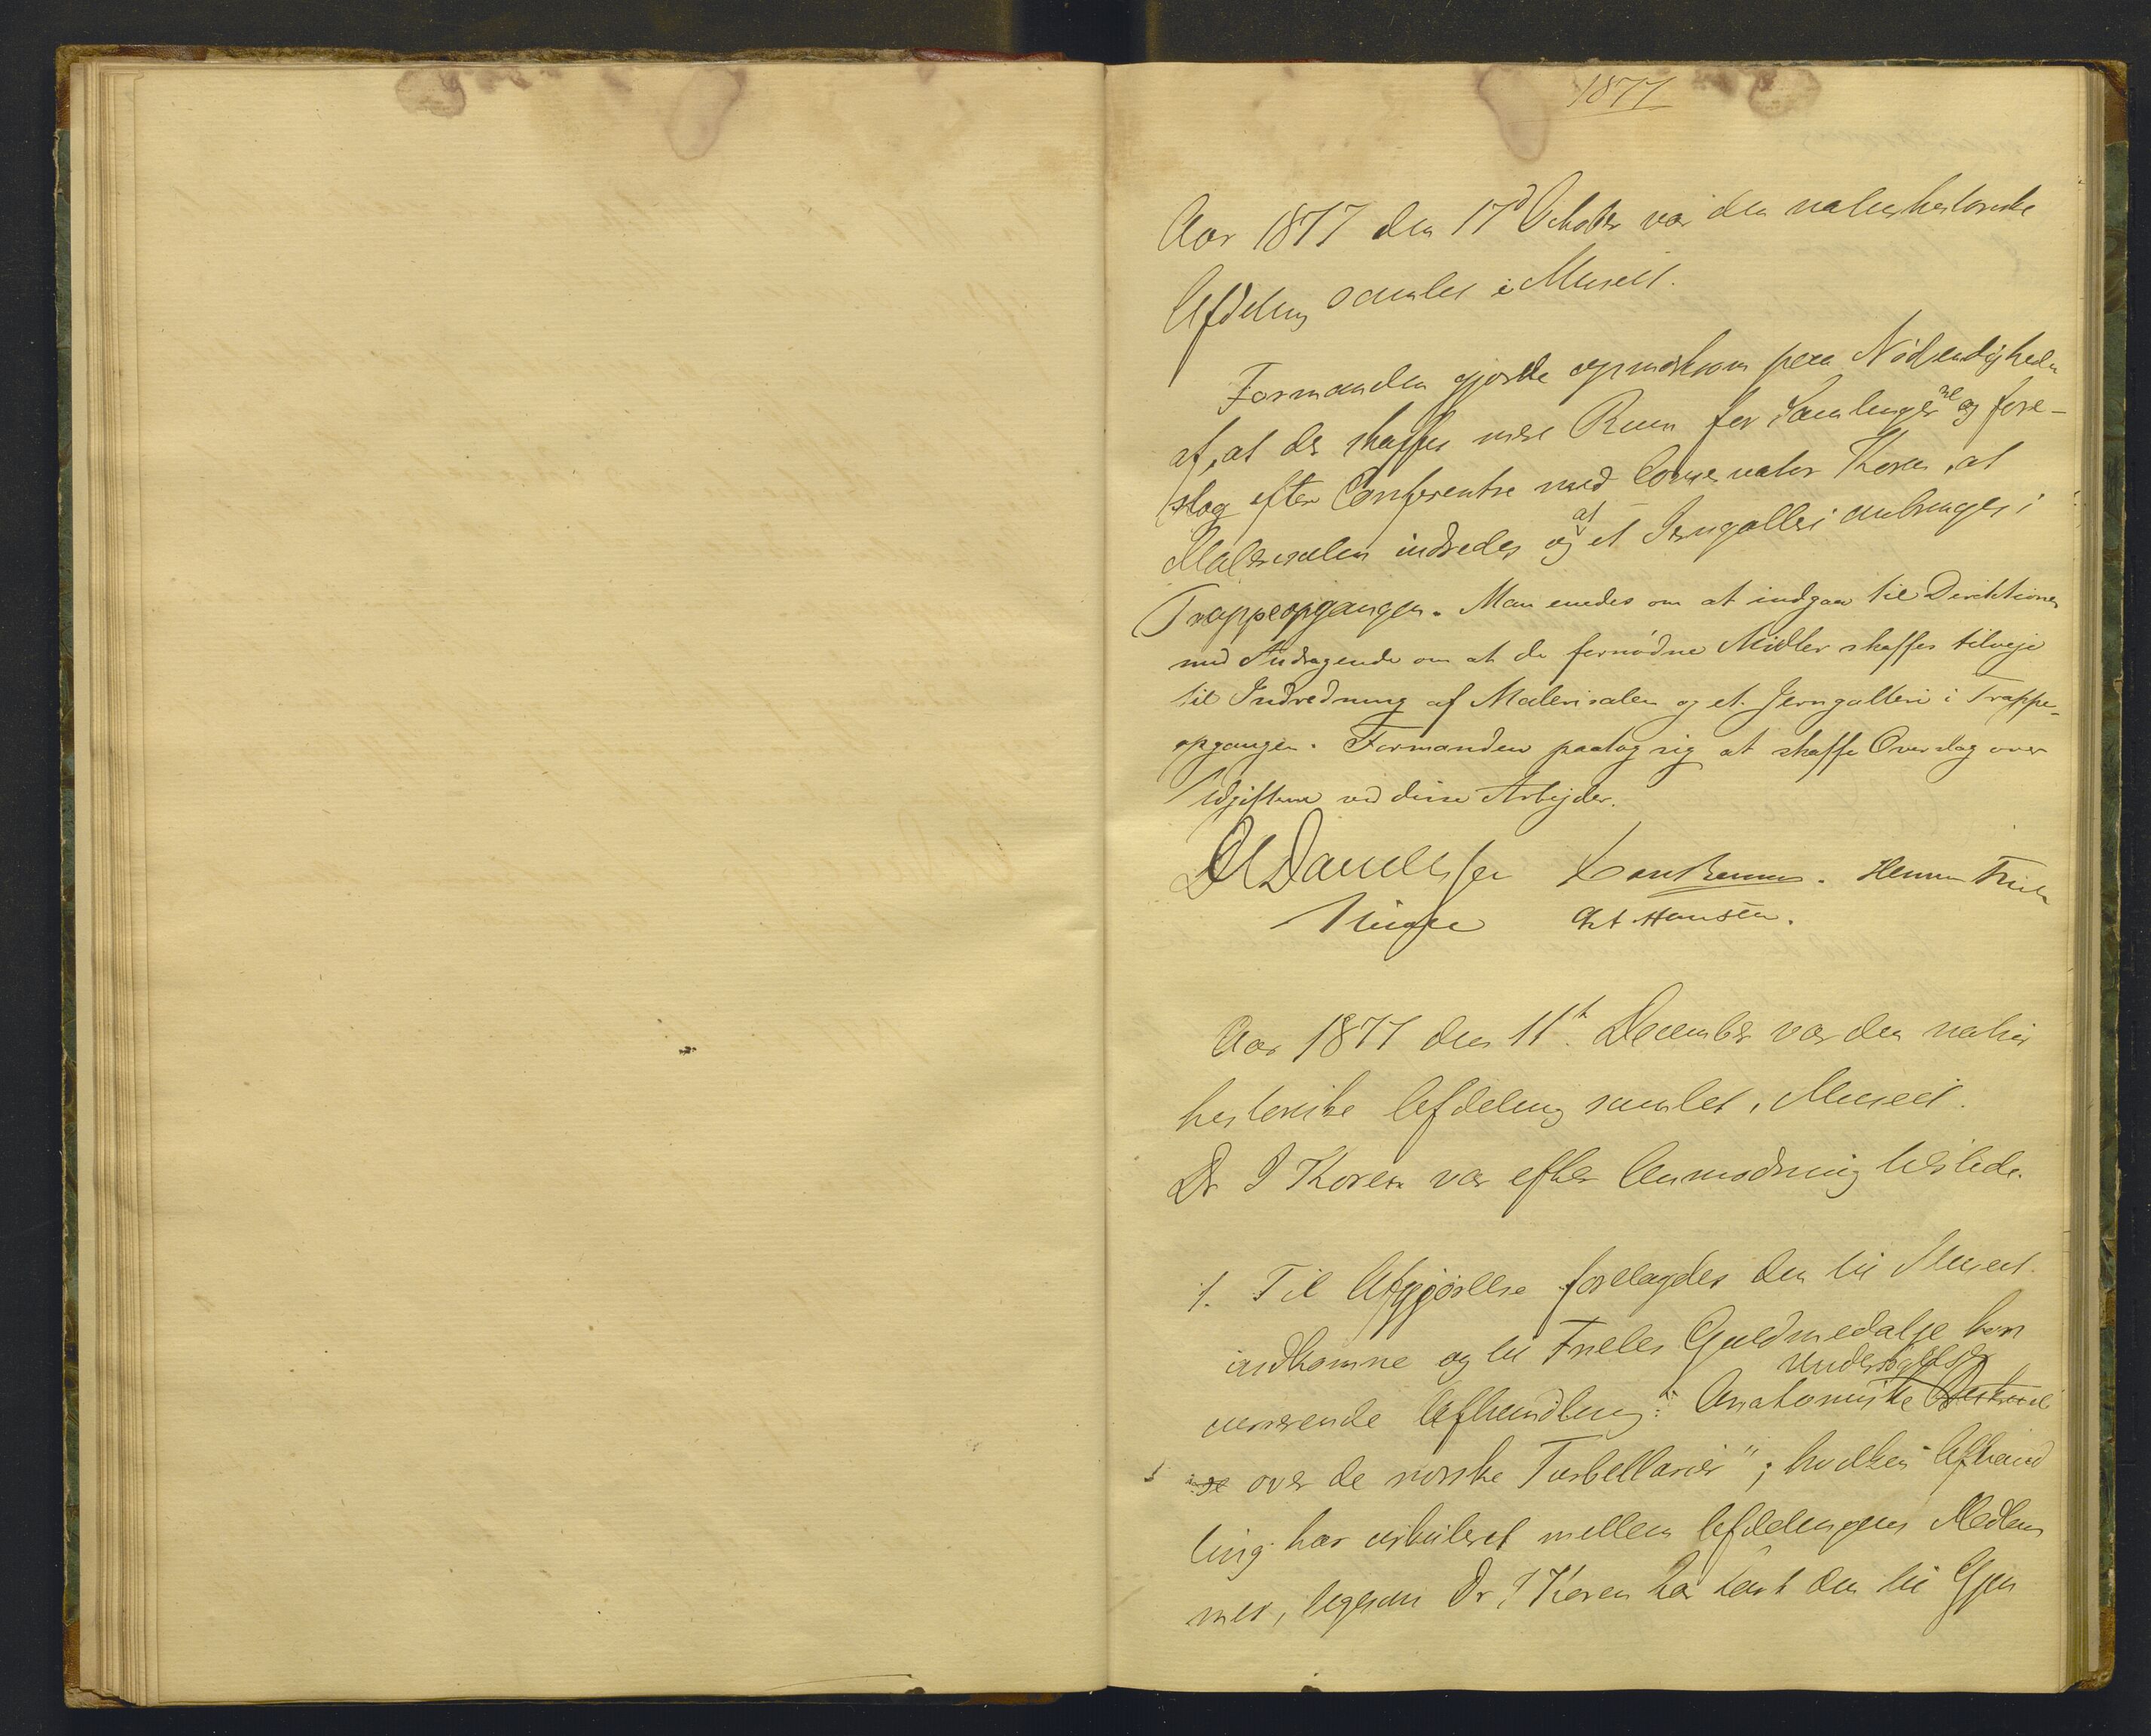 1877
Aar 1877 den 17d October var den naturhistoriske
Afdeling samlet i Museet.
Formanden gjorde opmærksom paa Nødvendigheden
af, at der skaffes mere Rum for Samlingerne og fore-
slog efter Conferentse med Conservator Koren, at
Malerisalen indredes og at et Jerngalleri anbringes i
Trappeopgangen. Man enedes om at indgaa til Direktionen
med Andragende om at de fornødne Midler skaffes tilveje
til Indredning af Malerisalen og et Jerngalleri i Trappe-
opgangen. Formanden paatog sig at skaffe Overslag over
Udgifterne ved disse Arbejder.
DCDanielssen Herman Friele
Aar 1877 den 11t December var den natur
historiske Afdeling samlet i Museet.
Dr J Koren var efter Anmodning tilstede.
1. Til Afgjørelse forelagdes den til Museet
indkomne og til Frieles Guldmedalje kon
Undersøgelser
curerende Afhandling: "Anatomiske Beskrivel
se over de norske Turbellarier"; hvilken Afhand
ling har cirkuleret mellem Afdelingens Medlem
mer, ligesom Dr J Koren har havt den til Gjen